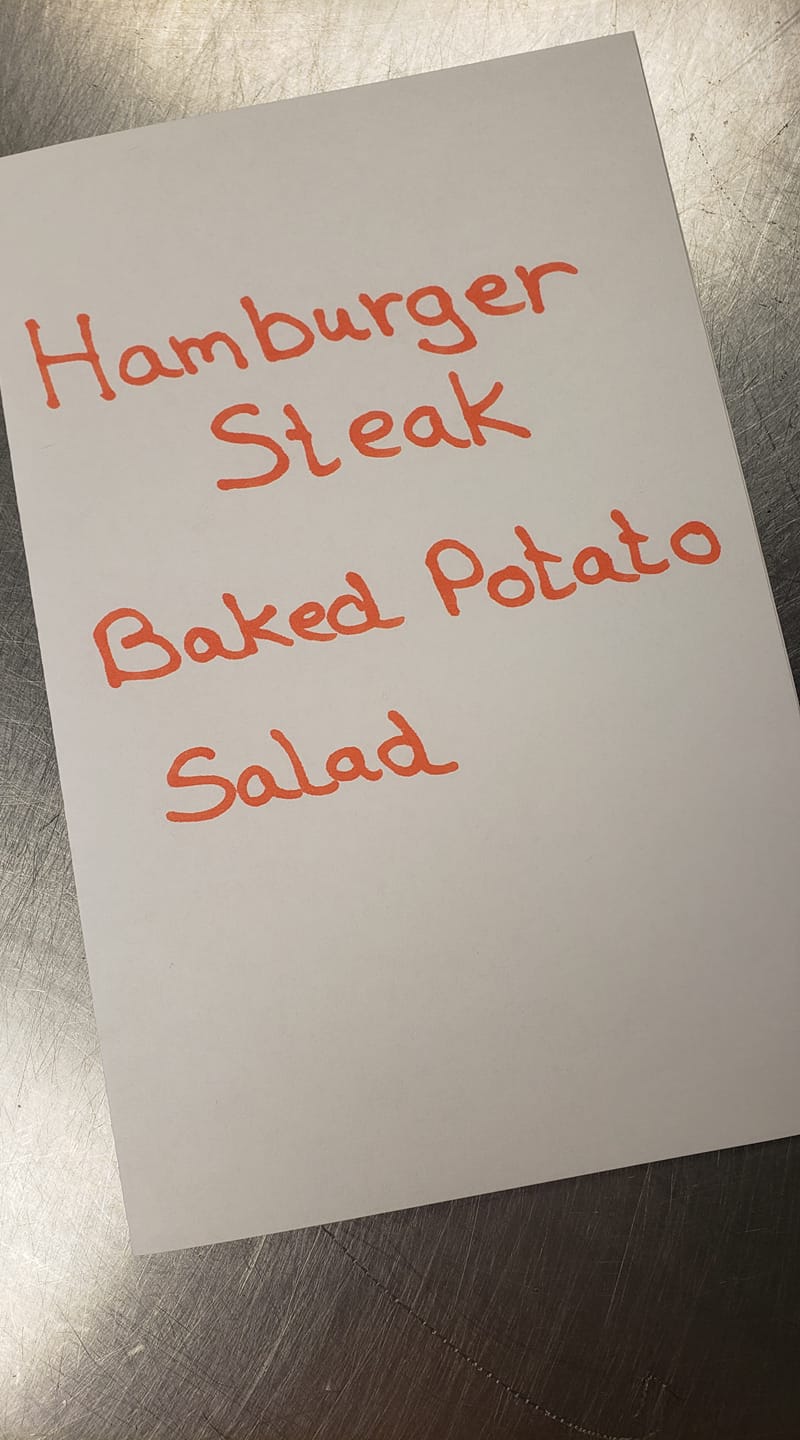 Hamburger
Steak
Baked Potato
Salad